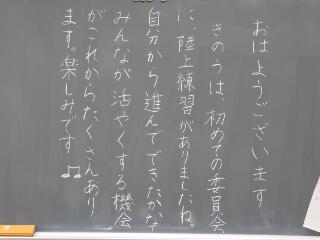 おはようございます
きのうは、初めての委員会
に、陸上練習がありましたね。
自分から進んでできたかな?
みんなが活やくする機会
がこれからたくさんあり
ます。楽しみです♫